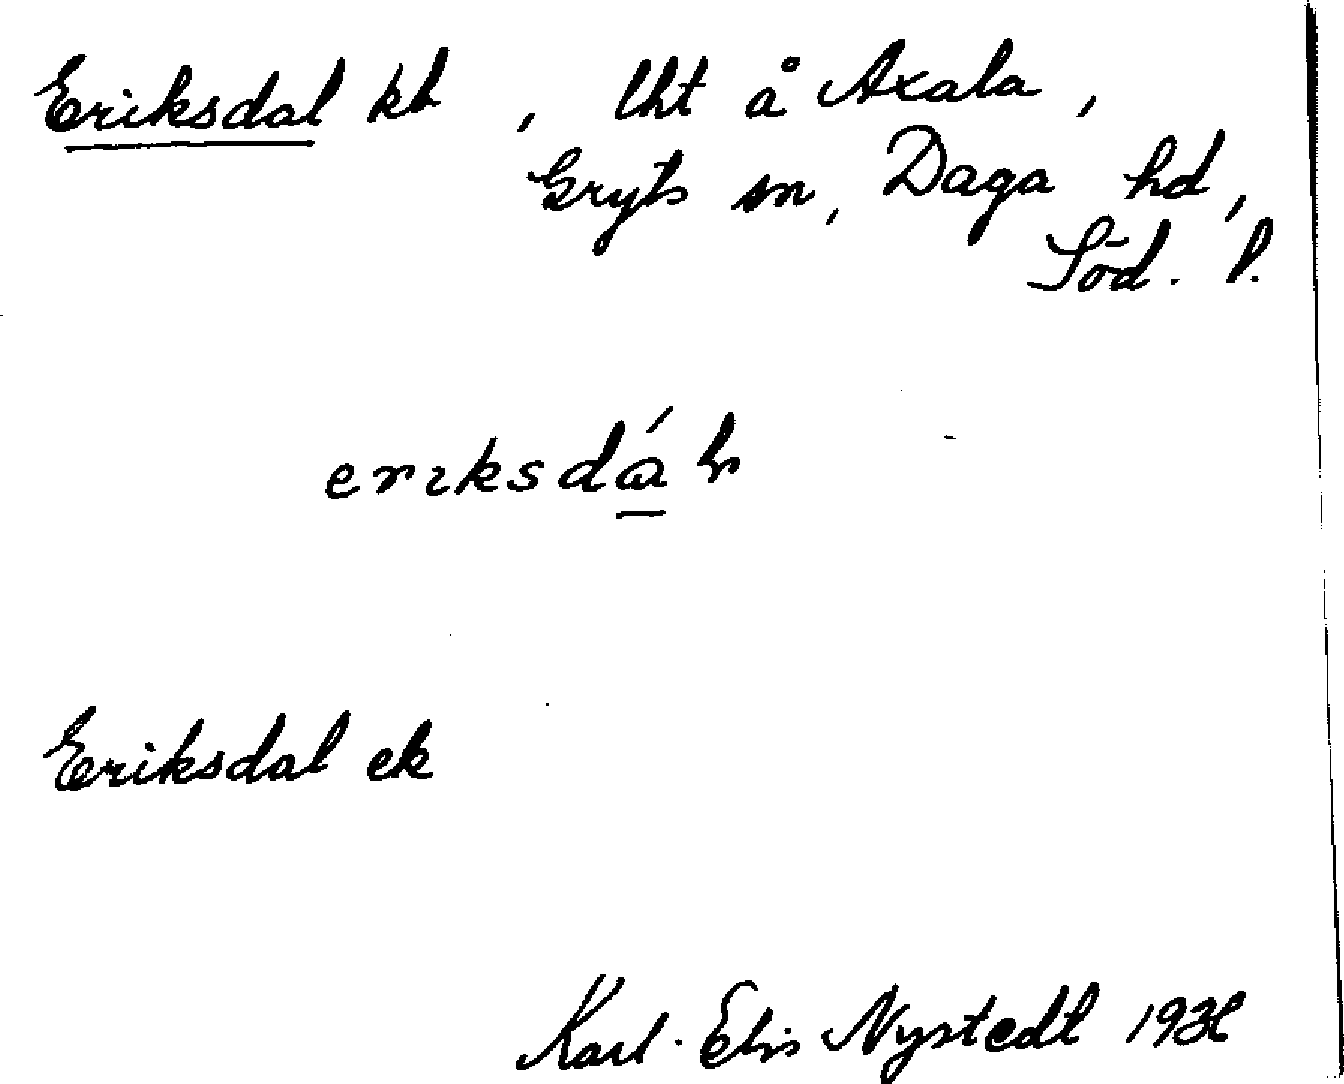 Eriksdal kt , lht å Axala ,
Gryts sn, Daga hd,
Söd. l.
Eriksdal ek
Karl-Elis Nystedt